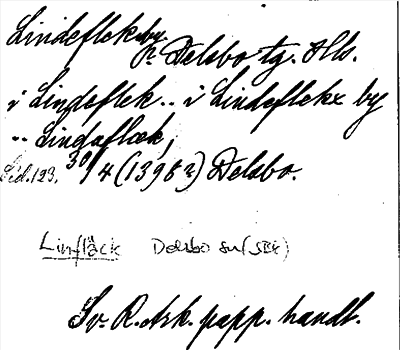 Lindeflek by
Delsbo tg. Hls.
i Lindeflek .. i Lindeflekx by
.. Lindaflæk,
Sid. 123. 30/4 (1395?) Delsbo.
Linfläck Delsbo sn (SEK)
Sv. R. Ark. papp. handl.